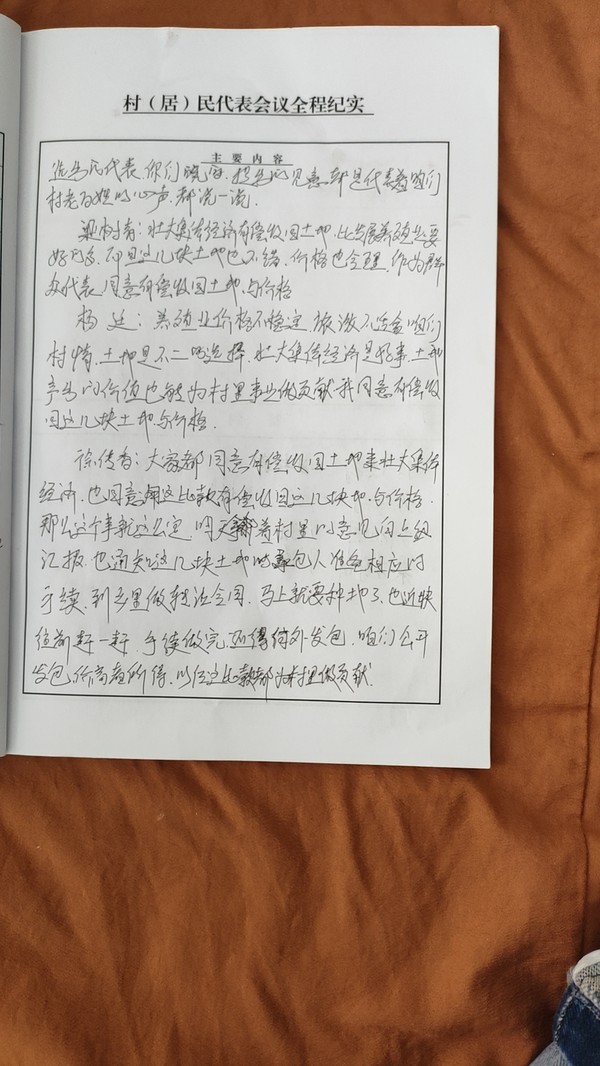 村（居）民代表会议全程纪实
主要内容
作为民代表，你们说话、提出的见意都是代表着咱们
村老百姓的心声，都说一说。
梁树青：壮大集体经济有偿收回土地，比发展养殖业要
好的多，而且这几块土地也不错，价格也合理，作为群
众代表同意有偿收回土地与价格
杨廷：养殖业价格不稳定，旅游不适合咱们
村情，土地是不二的选择，壮大集体经济是好事，土地
产出的价值也能为村里事业做贡献我同意有偿收
回这几块土地与价格。
徐传香：大家都同意有偿收回土地来壮大集体
经济，也同意用这比款有偿收回这几块地与价格，
那么这个事就这么定，明天拿着村里的意见向上级
汇报，也通知这几块土地的承包人准备相应的
手续，到乡里做转让合同，马上就要种地了，也近快
往前赶一赶，手续做完还得往外发包，咱们公开
发包价高者所得，以后这比款都为村里做贡献。